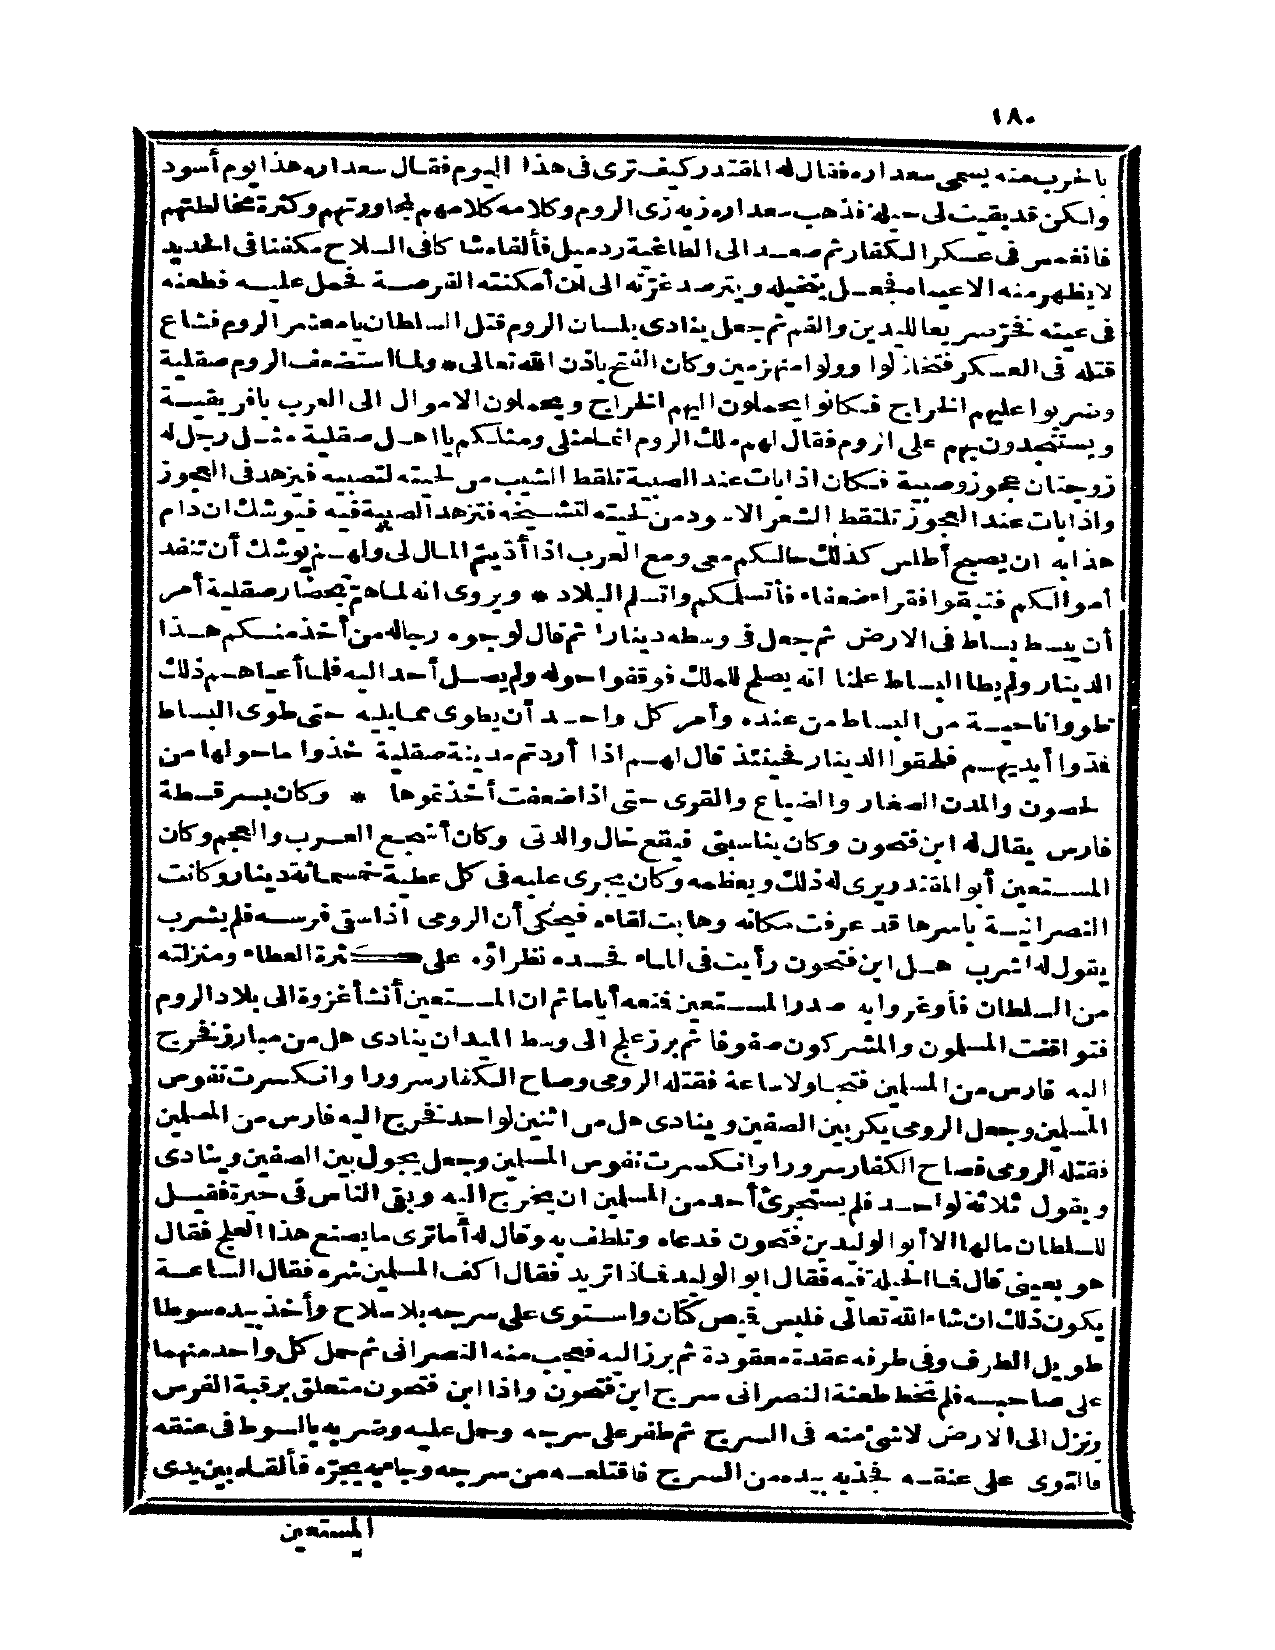 ١٨٠
بالحرب منه يسمى سعداره فقال له المقتدر كيف ترى فى هذا اليوم فقال سعداره هذا يوم أسود
ولكن قد بقيت لى حيلة فذهب سعداره زيه زى الروم وكلامه كلامهم لمجاورتهم وكثرة مخالطتهم
فانغمس فى عسكر الكفار ثم صعد الى الطاغية ردميل فألقاه شاكا فى السلاح مكفنا فى الحديد
لا يظهر منه الا عيناه فجعل يتخيله ويترصد غرته الى ان أمكنته الفرصة فحمل عليه فطعنه
فى عينه فخر صريعا لليدين والفم ثم جعل ينادى بلسان الروم قتل السلطان يا معشر الروم فشاع
قتله فى العسكر فتخاذلوا وولوا منهزمين وكان الفتح باذن الله تعالى * ولما استضعف الروم صقلية
وضربوا عليهم الخراج فكانوا يحملون اليهم الخراج ويحملون الاموال الى العرب بافريقية
ويستنجدون بهم على الروم فقال لهم ملك الروم انما مثلى ومثلكم يا اهل صقلية مثل رجل له
زوجتان عجوز وصبية فكان اذا بات عند الصبية تلقط الشيب من لحيته لتصبيه فيزهد فى العجوز
واذا بات عند العجوز تلتقط الشعر الاسود من لحيته لتشيخه فتزهد الصبية فيه فيوشك ان دام
هذا به ان يصبح أطلس كذلك حالكم معى ومع العرب اذا أديتم المال لى ولهم يوشك أن تنفد
أموالكم فتبقوا فقراء ضعفاء فأتسلمكم واتسلم البلاد * ويروى انه لما هم بحصار صقلية أمر
أن يبسط بساط فى الارض ثم جعل فى وسطه دينارا ثم قال لوجوه رجاله من أخذ منكم هذا
الدينار ولم يطا البساط علمنا انه يصلح للملك فوقفوا حوله ولم يصل أحد اليه فلما أعياهم ذلك
طووا ناحية من البساط من عنده وأمر كل واحد أن يطوى مما يليه حتى طوى البساط
فمدوا أيديهم فلحقوا الدينار فحينئذ قال لهم اذا أردتم مدينة صقلية خذوا ما حولها من
لحصون والمدن الصغار والضياع والقرى حتى اذا ضعفت أخذتموها * وكان بسرقسطة
فارس يقال له ابن فتحون وكان يناسبنى فيقع خال والدتى وكان أشجع العرب والعجم وكان
المستعين أبو المقتدر يرى له ذلك ويعظمه وكان يجرى عليه فى كل عطية خمسمائة دينار وكانت
النصرانية باسرها قد عرفت مكانه وهابت لقاءه فيحكى أن الرومى اذا سقى فرسه فلم يشرب
يقول له اشرب هل ابن فتحون رأيت فى الماء فحسده نظراؤه على كثرة العطاء ومنزلته
من السلطان فأوغروا به صدر المستعين فمنعه أياما ثم ان المستعين أنشأ غزوة الى بلاد الروم
فتواقفت المسلمون والمشركون صفوفا ثم برز علج الى وسط الميدان ينادى هل من مبارز فخرج
اليه فارس من المسلمين فتجاولا ساعة فقتله الرومى وصاح الكفار سرورا وانكسرت نفوس
المسلمين وجعل الرومى يكر بين الصفين وينادى هل من اثنين لواحد فخرج اليه فارس من المسلمين
فقتله الرومى فصاح الكفار سرورا وانكسرت نفوس المسلمين وجعل يجول بين الصفين وينادى
ويقول ثلاثة لواحد فلم يستجرئ أحد من المسلمين ان يخرج اليه وبقى الناس فى حيرة فقيل
للسلطان ما لها الا أبو الوليد بن فتحون فدعاه وتلطف به وقال له أما ترى ما يصنع هذا العلج فقال
هو بعينى قال فما الحيلة فيه فقال ابو الوليد فماذا تريد فقال اكف المسلمين شره فقال الساعة
يكون ذلك ان شاء الله تعالى فلبس قميص كتان واستوى على سرجه بلا سلاح وأخذ بيده سوطا
طويل الطرف وفى طرفه عقدة معقودة ثم برز اليه فعجب منه النصرانى ثم حمل كل واحد منهما
على صاحبه فلم تخط طعنة النصرانى سرج ابن فتحون واذا ابن فتحون متعلق برقبة الفرس
ونزل الى الارض لا شئ منه فى السرج ثم طفر على سرجه وحمل عليه وضربه بالسوط فى عنقه
فالتوى على عنقه فجذبه بيده من السرج فاقتلعه من سرجه وجاء به يجره فألقاه بين يدى
المستعين